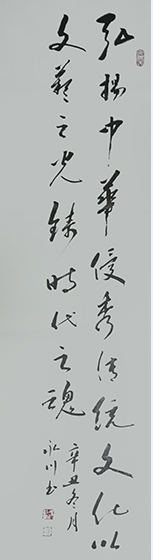 弘揚中華優秀传統文化以
文藝之光鑄時代之魂
辛丑冬月
永川书